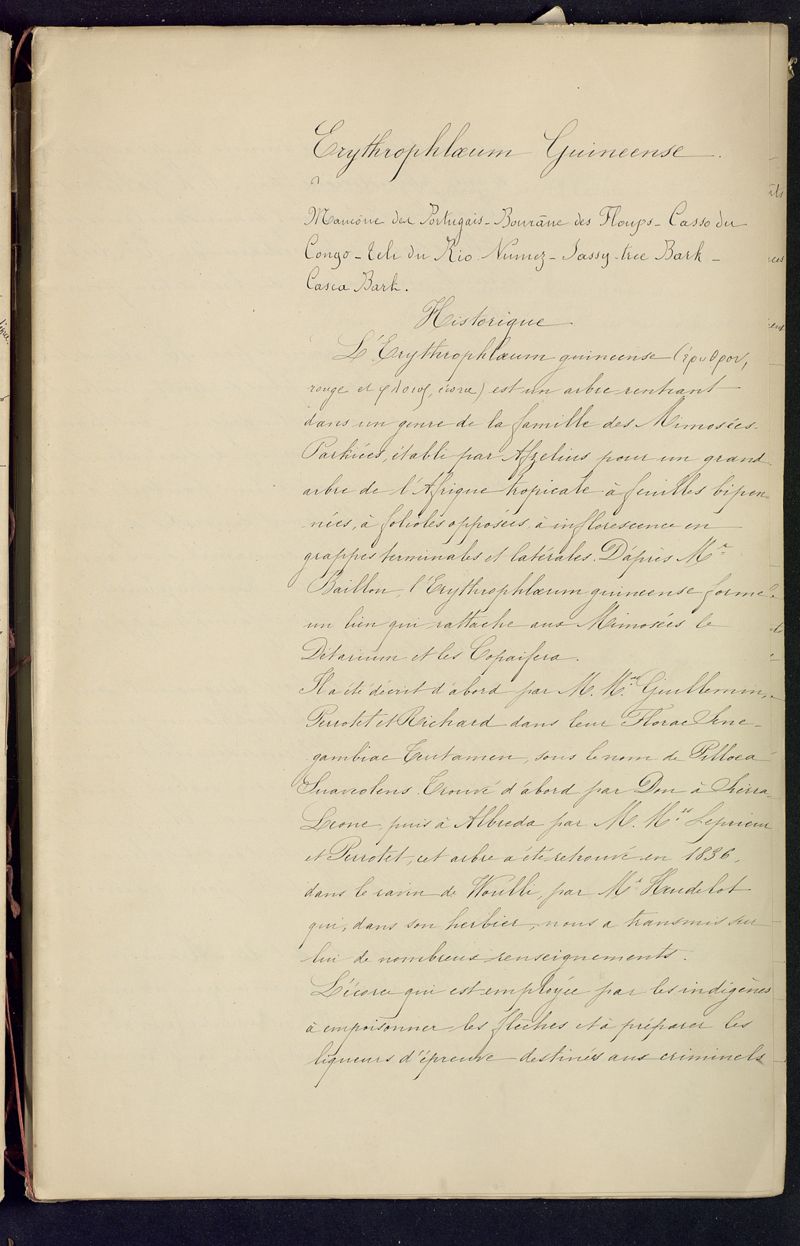 Erythrophlœum Guineense.
Mancône des Portugais - Bourâne des Floups - Casso du
Congo - Teli du Rio Nunez - Sassy-tree Bark -
Casca Bark.
Historique
L'Erythrophlœum guineense (ἐρυθρον,
rouge et φλοιος, écorce) est un arbre rentrant
dans un genre de la famille des Mimosées-
Parkiées, établi par Afzelius pour un grand
arbre de l'Afrique tropicale à feuilles bipen-
nées, à folioles opposées, à inflorescence en
grappes terminales et latérales. D'après Mr
Baillon, l'Erythrophlœum guineense forme
un lien qui rattache aux Mimosées le
Detarium et les Copaifera.
Il a été décrit d'abord par M. Mrs Guillemin,
Perrotet et Richard dans leur Florae Sene-
gambiae Tentamen, sous le nom de
Suaveolens. Trouvé d'abord par Don à Sierra-
Leone, puis à Albreda par M. Mrs Leprieur
et Perrotet, cet arbre a été retrouvé en 1836,
dans le ravin de Woulli, par Mr Heudelot
qui, dans son herbier, nous a transmis sur
lui de nombreux renseignements.
L'écorce qui est employée par les indigènes
à empoisonner les flèches et à préparer les
liqueurs d'épreuve destinées aux criminels